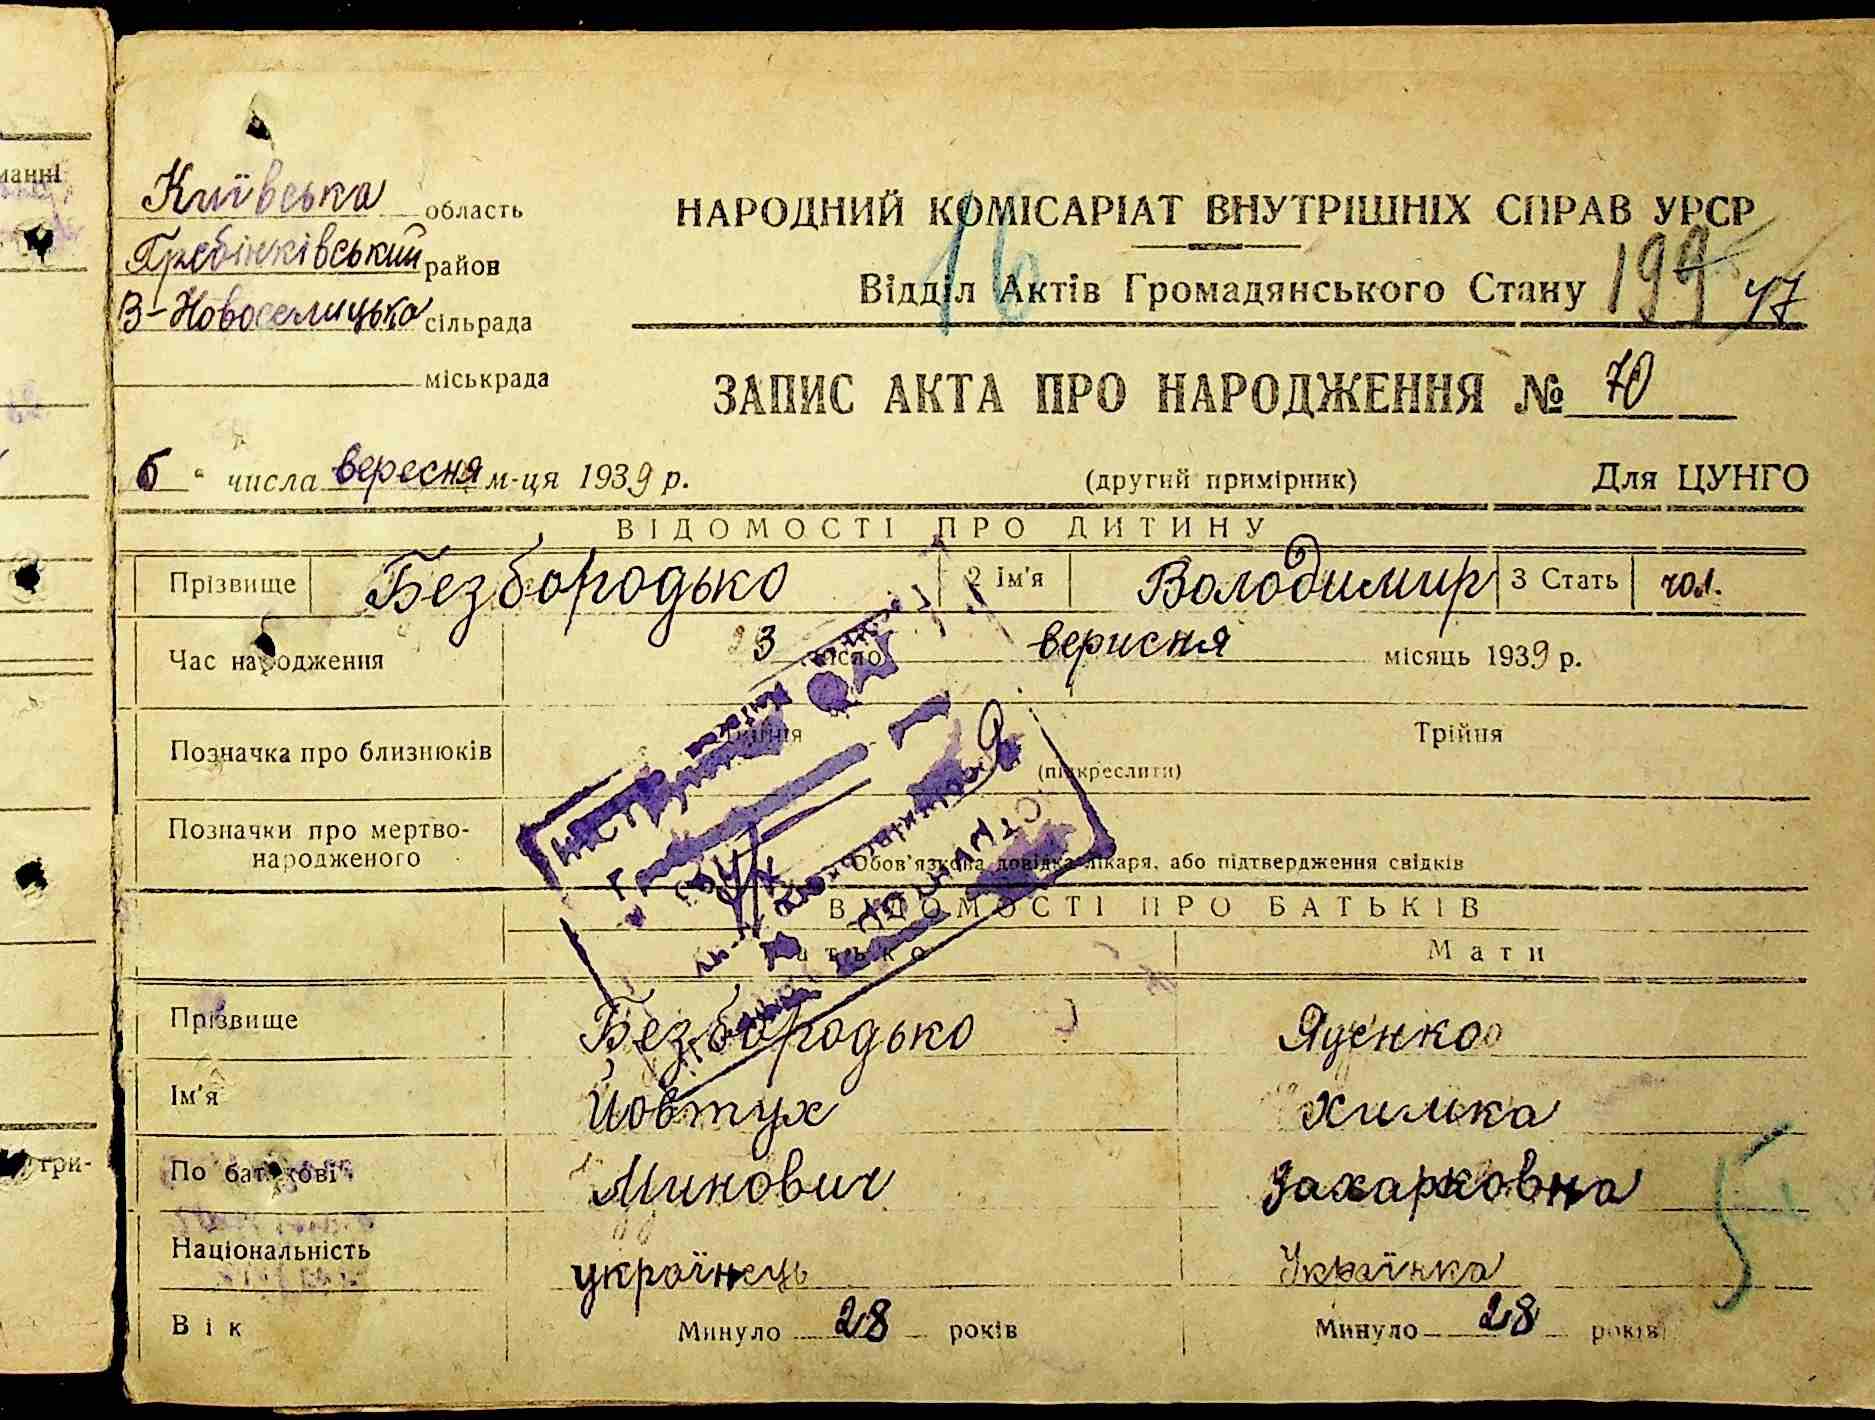 Київська область
Гребінківський район
В-Новоселицька сільрада
міськрада
НАРОДНИЙ КОМІСАРІАТ ВНУТРІШНІХ СПРАВ УРСР
16
Відділ Актів Громадянського Стану 199 47
ЗАПИС АКТА ПРО НАРОДЖЕННЯ № 70
6 " числа вересня м-ця 1939 р. (другий примірник) Для ЦУНГО
ВІДОМОСТІ ПРО ДИТИНУ
Прізвище Безбородько 2 Ім'я Володимир 3 Стать чол.
Час народження 3 число верисня місяць 1939 р.
Позначка про близнюків Трійня
(підкреслити)
Позначки про мертво-
народженого Обов'язкова довідка лікаря, або підтвердження свідків
ВІДОМОСТІ ПРО БАТЬКІВ
Батько Мати
Прізвище Безбородько Яценко
Ім'я Йовтух Химка
По батькові Минович Захарковна
Національність українець Українка
Вік Минуло 28 років Минуло 28 років
5